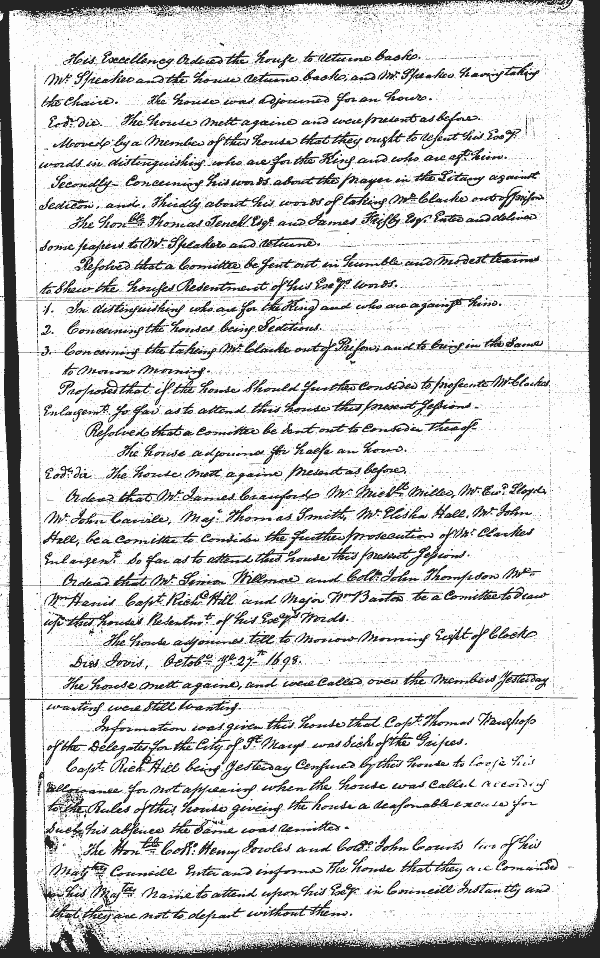 His Excellency Ordered the house to returne back.
Mr. Speaker and the house returne back, and Mr. Speaker having taking
the Chaire. The house was adjourned for an houre.
Eod: die. The house mett againe and were present as before.
Moved by a Member of this house that they ought to resent his Exc:ys
words in distinguishing who are for the King and who are agt. him.
Secondly – Concerning his words about the prayer in the Litany against
Sedition, and, Thirdly about his words of taking Mr. Clarke out of prison
The honble Thomas Tench Esqr. and James Frisby Esqr. Enter and deliver
some papers to Mr. Speaker and returne.
Resolved that a Comittee be sent out in humble and modest tearms
to shew the houses Resentment of his Exc:ys words.
1. In distinguishing who are for the King and who are against him.
2. Concerning the houses being Seditious.
3. Concerning the taking Mr. Clarke out of Prison; and to bring in the Same
to Morrow Morning.
Proposed that if the house Should further consider to prosecute Mr. Clarkes
Enlargemt. so far as to attend this house this present Sessions.
Resolved that a Comittee be sent out to Consider thereof
The house adjournes for halfe an hour.
Eod: die The house mett againe present as before
Ordered that Mr. James Crauford Mr. Michll Miller, Mr. Edwd. Lloyd
Mr. John Carvile, Majr. Thomas Smith, Mr. Elisha Hall, Mr. John
Hall, be a Comittee to Consider the further prosecution of Mr. Clarkes
Enlargemt. So far as to attend this house this present Sessions.
Ordered that Mr. Simon Willmore and Collo. John Thompson Mr.
Wm Harris Capt. Richd Hill and Major Wm Barton be a Comittee to draw
up this houses Resentmt. of his Exc:ys Words.
The house adjournes till to Morrow Morning Eight of Clock
Dies Jovis, Octobr. ye 27th 1698.
The house mett againe, and were called over the Members Yesterday
wanting were Still wanting.
Information was given this house that Capt. Thomas
of the Delegates for the City of St. Marys was Sick of the Gripes.
Capt. Richd Hill being Yesterday Censured by this house to loose his
allowance for not appearing when the house was called according
to the Rules of this house giveing the house a reasonable excuse for
Such his absence the Same was remitted.
The Honble Collo. Henry Jowles and Collo. John Courts two of his
Majtys Councill Enter and informe the house that they are Comanded
in his Majtys Name to attend upon his Excy. in Councill Instantly and
that they are not to depart without them.